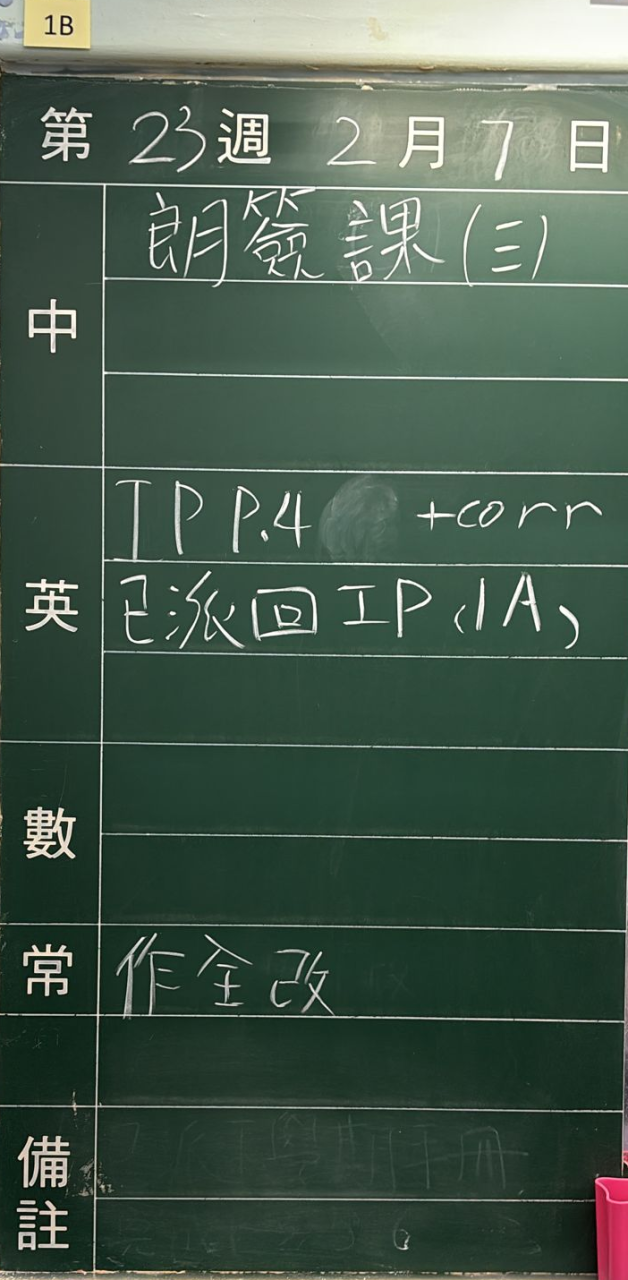 1B
第 23 週 2 月 7 日
中
朗簽課(三)
英
IP P.4 +corr
已派回IP(1A)
數
常
作全改
備註